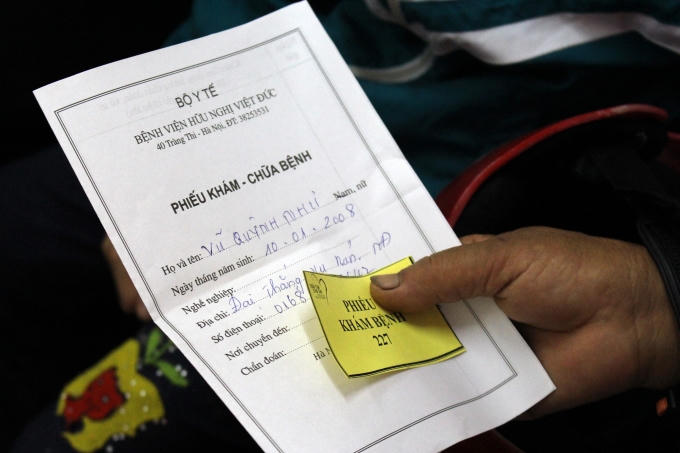 BỘ Y TẾ
BỆNH VIỆN HỮU NGHỊ VIỆT ĐỨC
40 Tràng Thi - Hà Nội, ĐT: 38253531
PHIẾU KHÁM - CHỮA BỆNH
Họ và tên: VŨ QUỲNH NHƯ Nam, nữ
Ngày tháng năm sinh: 10.01.2008
Nghề nghiệp:
Địa chỉ: Đại Thắng, Vụ Bản, NĐ
Số điện thoại: 0168
Nơi chuyển đến:
Chẩn đoán:
Hà N
PHIẾU
KHÁM BỆNH
227